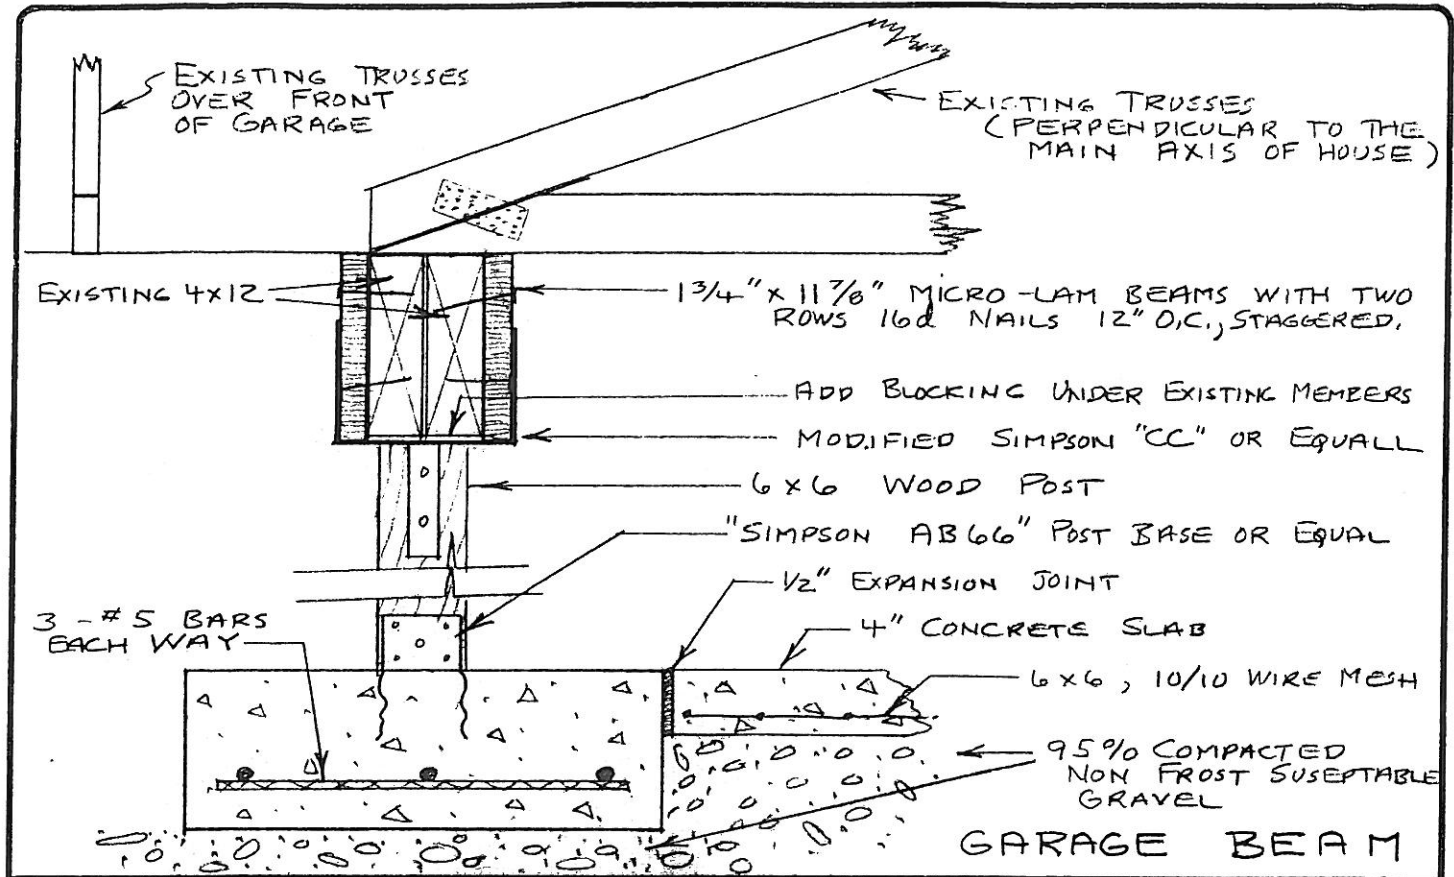 EXISTING TRUSSES
OVER FRONT
OF GARAGE
EXISTING TRUSSES
(PERPENDICULAR TO THE
MAIN AXIS OF HOUSE)
EXISTING 4x12
1 3/4" x 11 7/8" MICRO-LAM BEAMS WITH TWO
ROWS 16d NAILS 12" O.C., STAGGERED.
ADD BLOCKING UNDER EXISTING MEMBERS
MODIFIED SIMPSON "CC" OR EQUALL
6 x 6 WOOD POST
"SIMPSON AB66" POST BASE OR EQUAL
1/2" EXPANSION JOINT
3 - #5 BARS
EACH WAY
4" CONCRETE SLAB
6 x 6, 10/10 WIRE MESH
95% COMPACTED
NON FROST SUSEPTABLE
GRAVEL
GARAGE BEAM